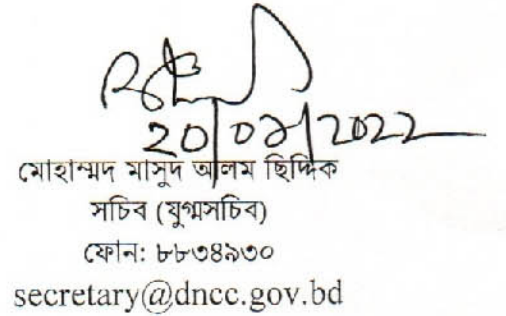 ২০/০১/২০২২
মোহাম্মদ মাসুদ আলম ছিদ্দিক
সচিব (যুগ্মসচিব)
ফোন: ৮৮৩৪৯৩০
secretary@dncc.gov.bd